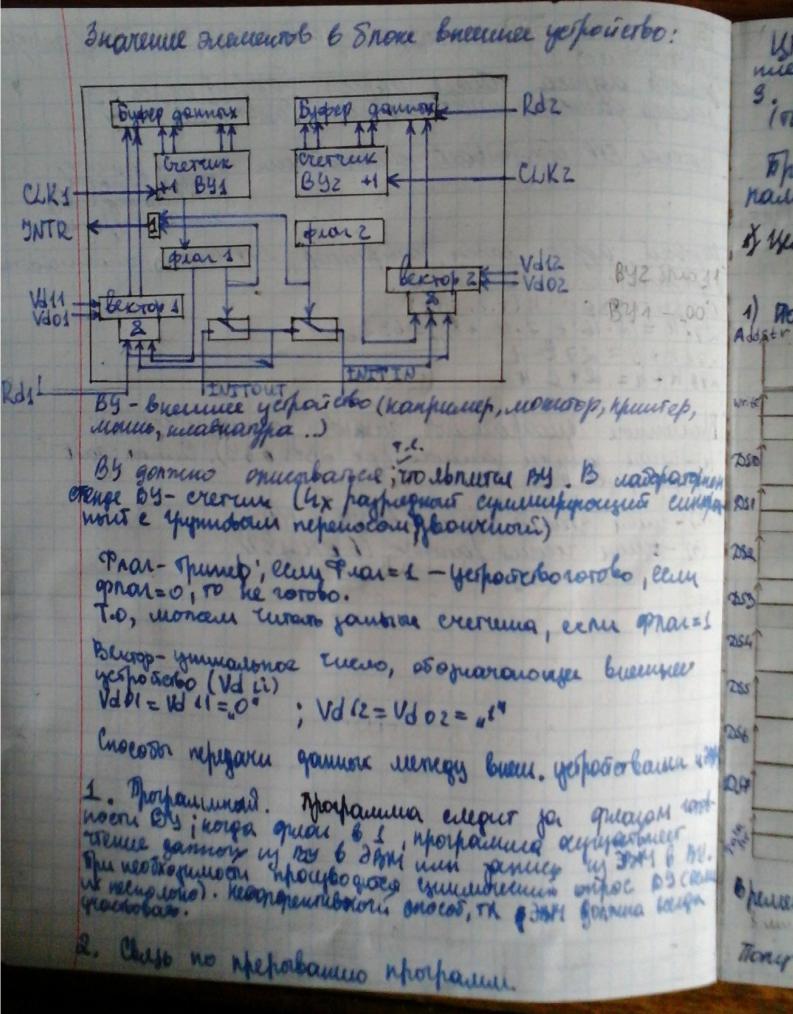 Значение элементов в блоке внешнее устройство:
Буфер данных
Буфер данных
Rd2
Счетчик
+1 ВУ1
Счетчик
ВУ2 +1
CLK1
CLK2
INTR
1
флаг 1
флаг 2
Vd11
Vd01
вектор 1
&
вектор 2
&
Vd12
Vd02
ВУ2
ВУ1 -
Rd1
INITOUT
INITIN
ВУ - внешнее устройство (например, монитор, принтер,
мышь, клавиатура ..)
т.е.
ВУ должно описываться, что является ВУ. В лабораторном
стенде ВУ - счетчик (4х разрядный суммирующий синхрон
ный с групповым переносом, двоичный)
Флаг - триггер, если флаг = 1 - устройство готово, если
флаг = 0, то не готово.
Т.о, можем читать данные счетчика, если флаг = 1
Вектор - уникальное число, обозначающее внешнее
устройство (Vd ij)
Vd01 = Vd 11 = "0" ; Vd 12 = Vd 02 = "1"
Способы передачи данных между внеш. устройствами и ЭВМ
1. Программный. Программа следит за флагом готов-
ности ВУ; когда флаг в 1, программа осуществляет
чтение данных из ВУ в ЭВМ или запись из ЭВМ в ВУ.
При необходимости производится циклический опрос ВУ (если
их несколько). Неэффективный способ, тк ЭВМ должна всегда
участвовать.
2. Связь по прерыванию программ.
1)
write
DS0
DS1
DS2
DS3
DS4
DS5
DS6
DS7